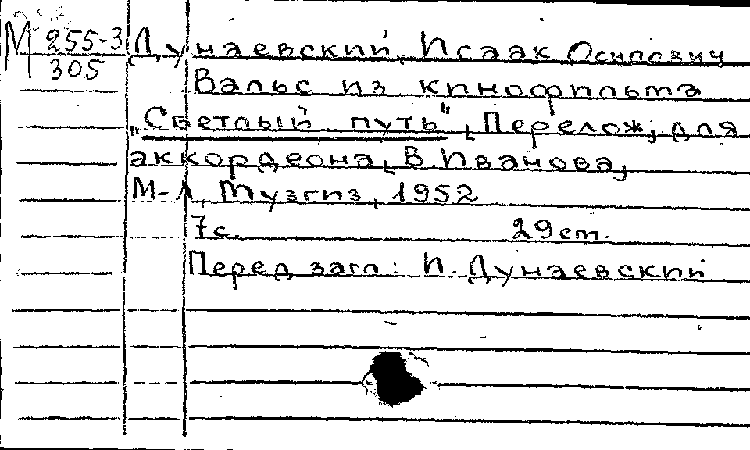 М 255-3
305
Дунаевский, Исаак Осипович
Вальс из кинофильма
"Светлый путь", Перелож, для
аккордеона, В Иванова,
М-Л, Музгиз, 1952
7с. 29см.
Перед загл: И. Дунаевский